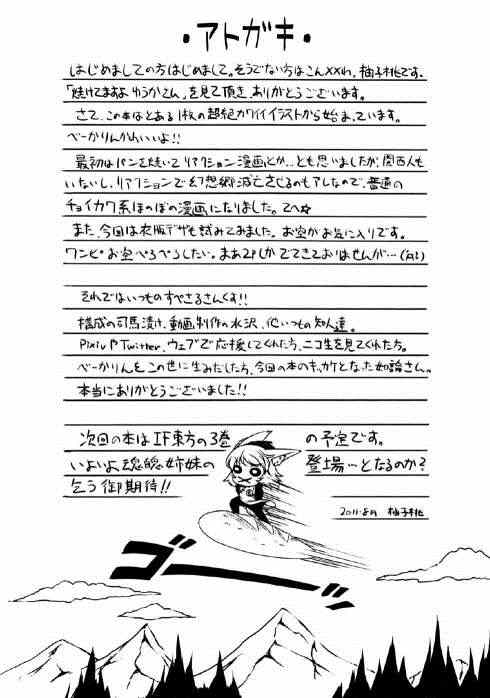 ・アトガキ・
はじめましての方はじめまして。そうでない方はこんxxわ、柚子桃です。
「焼けてますよゆうかさん」を見て頂き、ありがとうございます。
さて、この本はとある1枚の超絶カワイイイラストから始まっています。
べーかりんかわいいよ!!
最初はパンを焼いてリアクション漫画とか…とも思いましたが、関西人も
いないし、リアクションで幻想郷滅亡させるのもアレなので、普通の
チョイカワ系ほのぼの漫画になりました。てへ☆
また、今回は衣服デザも試みてみました。お空がお気に入りです。
ワンピお空ぺろぺろしたい。まあ2Pしかでてきておりませんが…
それではいつものすぺさるさんくす!!
構成の司馬漬け、動画制作の水沢、他いつもの知人達。
PixivやTwitter、ウェブで応援してくれた方、ニコ生を見てくれた方。
べーかりんをこの世に生みだした方、今回の本のキッカケとなった如諭さん。
本当にありがとうございました!!
次回の本はIF東方の3巻の予定です。
いよいよ 姉妹の登場…となるのか?
乞う御期待!!
2011.8月 柚子桃
ゴーッ